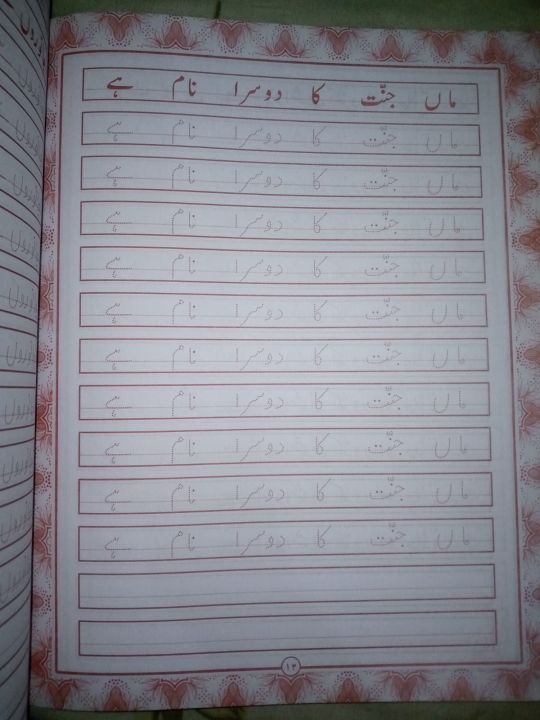 ماں جنّت کا دوسرا نام ہے
ماں جنّت کا دوسرا نام ہے
ماں جنّت کا دوسرا نام ہے
ماں جنّت کا دوسرا نام ہے
ماں جنّت کا دوسرا نام ہے
ماں جنّت کا دوسرا نام ہے
ماں جنّت کا دوسرا نام ہے
ماں جنّت کا دوسرا نام ہے
ماں جنّت کا دوسرا نام ہے
ماں جنّت کا دوسرا نام ہے
ماں جنّت کا دوسرا نام ہے
۱۳